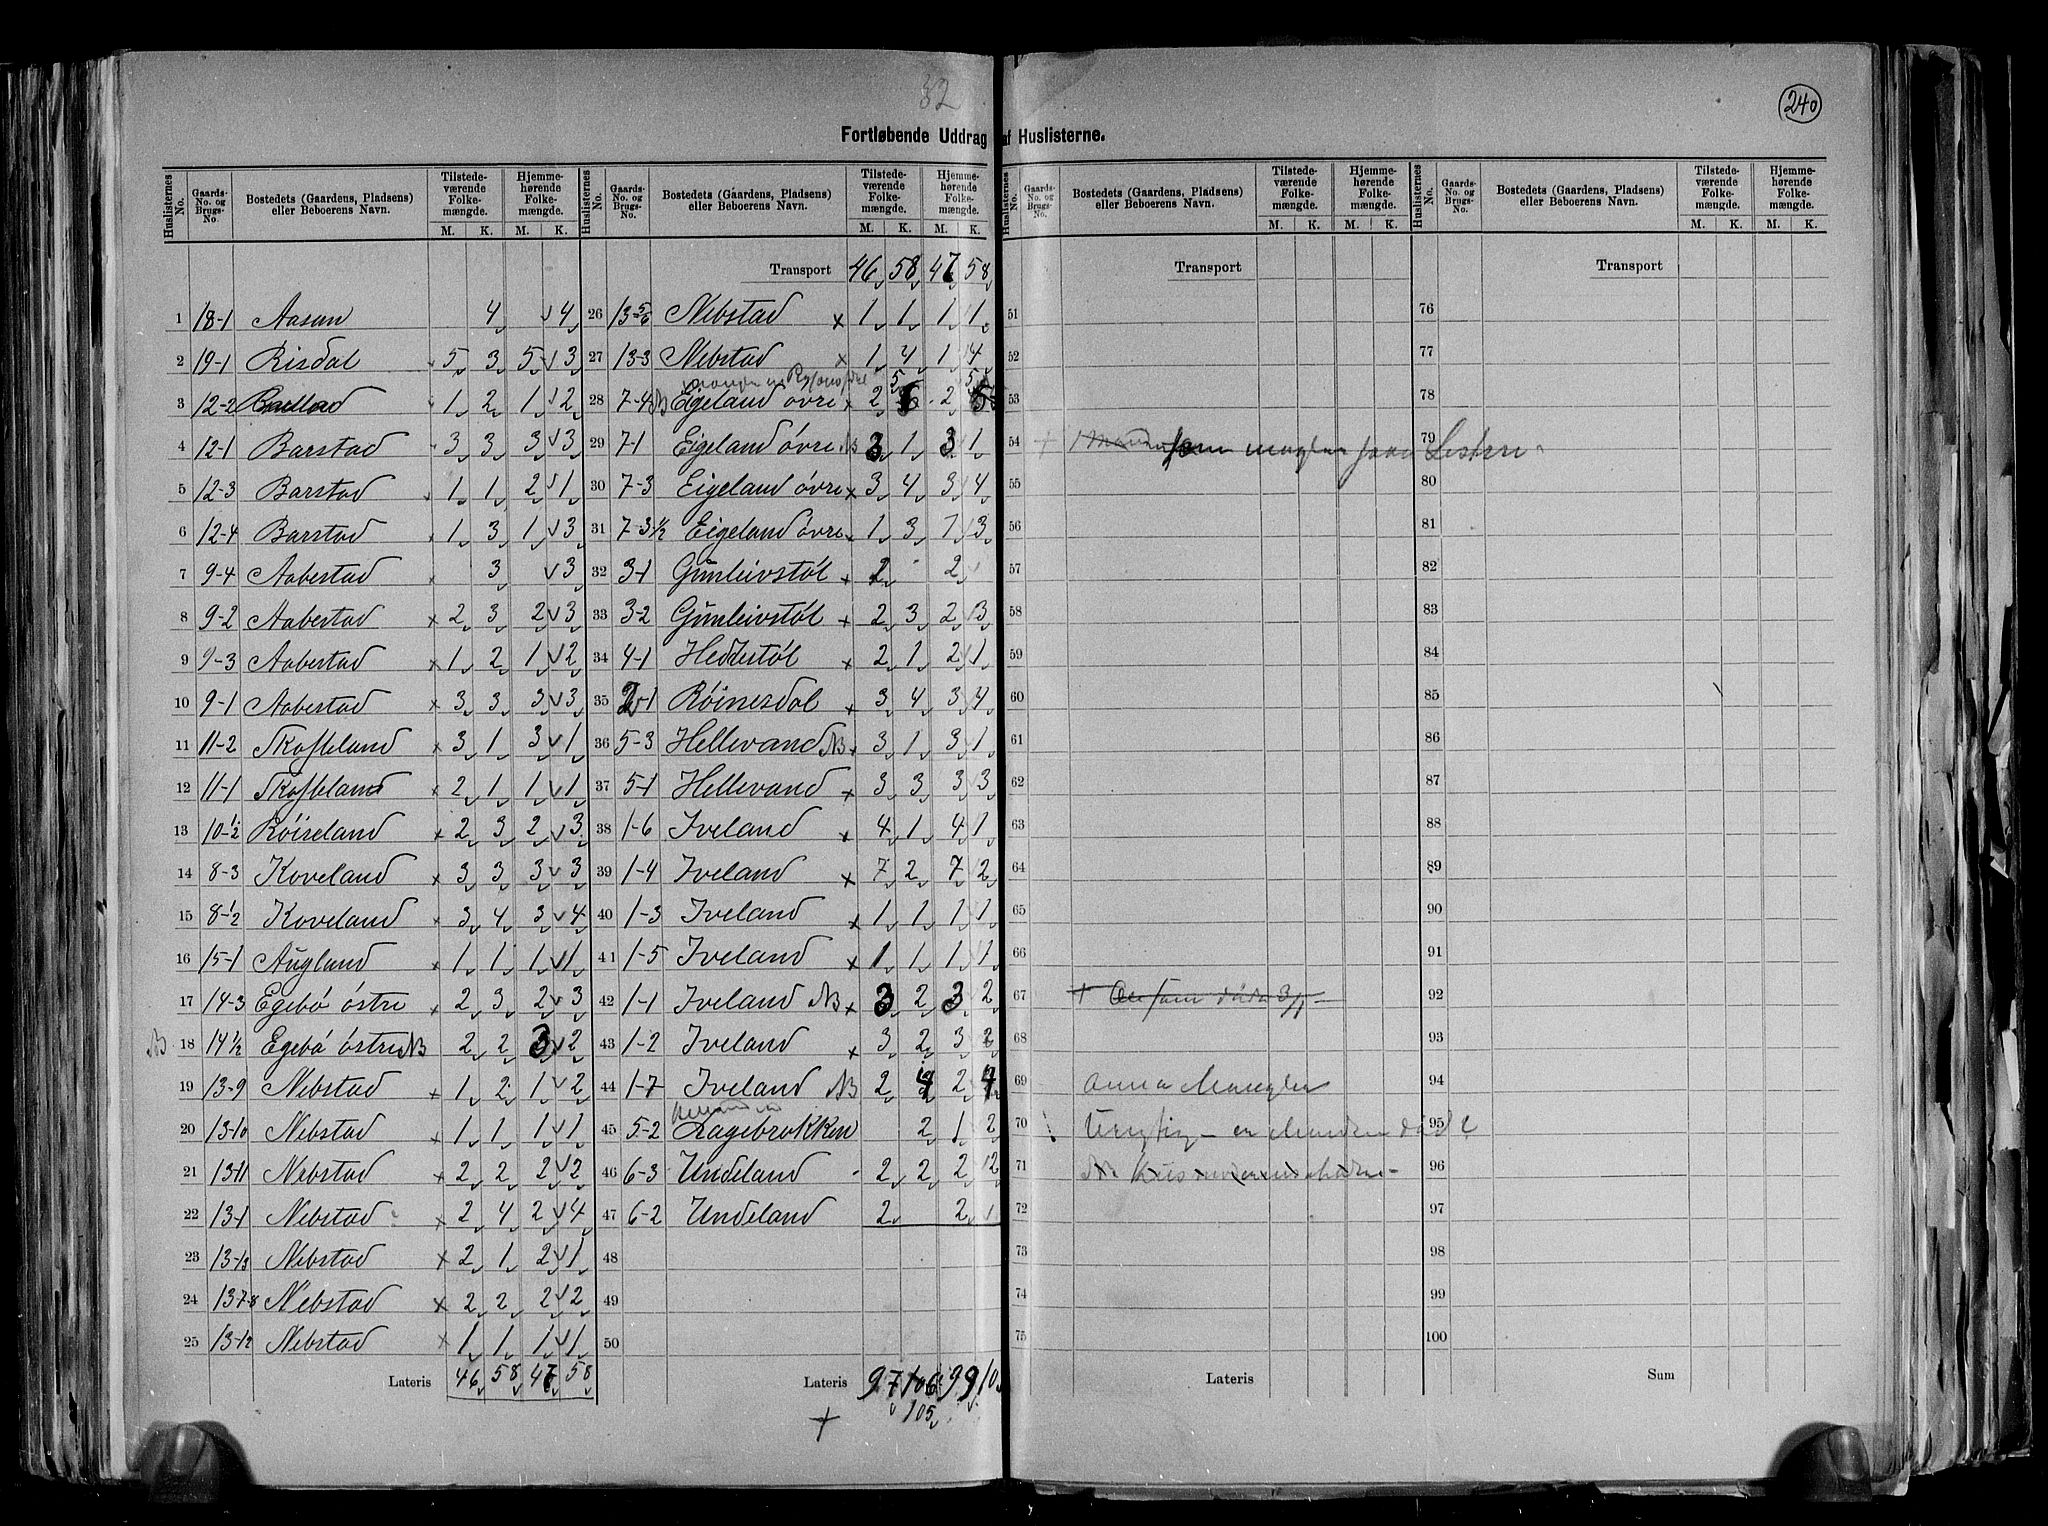 32
240
Fortløbende Uddrag af Huslisterne.
Huslisternes No. Gaards-No. og Brugs-No. Bostedets (Gaardens, Pladsens) eller Beboerens Navn. Tilstedeværende Folkemængde. M. K. Hjemmehørende Folkemængde. M. K.
Huslisternes No. Gaards-No. og Brugs-No. Bostedets (Gaardens, Pladsens) eller Beboerens Navn. Tilstedeværende Folkemængde. M. K. Hjemmehørende Folkemængde. M. K.
1 18-1 Aasen 4 4
2 19-1 Risdal 5 3 5 3
3 12-2 1 2 1 2
4 12-1 Barstad 3 3 3 3
5 12-3 Barstad 1 1 2 1
6 12-4 Barstad 1 3 1 3
7 9-4 Aabestad 3 3
8 9-2 Aabestad x 2 3 2 3
9 9-3 Aabestad x 1 2 1 2
10 9-1 Aabestad x 3 3 3 3
11 11-2 Skofteland x 3 1 3 1
12 11-1 Skofteland x 2 1 1 1
13 10-1/2 Röiseland x 2 3 2 3
14 8-3 Koveland x 3 3 3 3
15 8-1/2 Koveland x 3 4 3 4
16 15-1 Augland x 1 1 1 1
17 14-3 Egebö östre x 2 3 2 3
NB 18 14 1/2 Egebö östre NB 2 2 3 2
19 13-9 Nebstad x 1 2 1 2
20 13-10 Nebstad x 1 1 1 1
21 13-11 Nebstad x 2 2 2 2
22 13-1 Nebstad x 2 4 2 4
23 13-13 Nebstad x 2 1 2 1
24 13 7-8 Nebstad x 2 2 2 2
25 13-12 Nebstad x 1 1 1 1
Lateris 46 58 47 58
Transport 46 58 47 58
26 13-5/6 Nebstad x 1 1 1 1
27 13-3 Nebstad x 1 4 1 4
28 7-4 NB Eigeland övre x 2 5 2 5
29 7-1 Eigeland övre NB 3 1 3 1
30 7-3 Eigeland övre x 3 4 3 4
31 7-3 1/2 Eigeland övre x 1 3 1 3
32 3-1 Gunleivstöl x 2 2
33 3-2 Gunleivstöl x 2 3 2 3
34 4-1 Heddestöl x 2 1 2 1
35 2-1 Röinesdal x 3 4 3 4
36 5-3 Hellevand NB x 3 1 3 1
37 5-1 Hellevand x 3 3 3 3
38 1-6 Iveland x 4 1 4 1
39 1-4 Iveland x 7 2 7 2
40 1-3 Iveland x 1 1 1 1
41 1-5 Iveland x 1 1 1 1
42 1-1 Iveland NB x 3 2 3 2
43 1-2 Iveland x 3 2 3 2
44 1-7 Iveland NB 2 4 2 4
45 5-2 Lagebrokken 2 1 2
46 6-3 Undeland 2 2 2 2
47 6-2 Undeland 2 2
48
49
50
Lateris 97 106 99 10
105
Huslisternes No. Gaards-No. og Brugs-No. Bostedets (Gaardens, Pladsens) eller Beboerens Navn. Tilstedeværende Folkemængde. M. K. Hjemmehørende Folkemængde. M. K.
Huslisternes No. Gaards-No. og Brugs-No. Bostedets (Gaardens, Pladsens) eller Beboerens Navn. Tilstedeværende Folkemængde. M. K. Hjemmehørende Folkemængde. M. K.
Transport
51
52
53
54 som mangler paa Listen
55
56
57
58
59
60
61
62
63
64
65
66
67
68
69 Mangler
70
71
72
73
74
75
Lateris
Transport
76
77
78
79
80
81
82
83
84
85
86
87
88
89
90
91
92
93
94
95
96
97
98
99
100
Sum